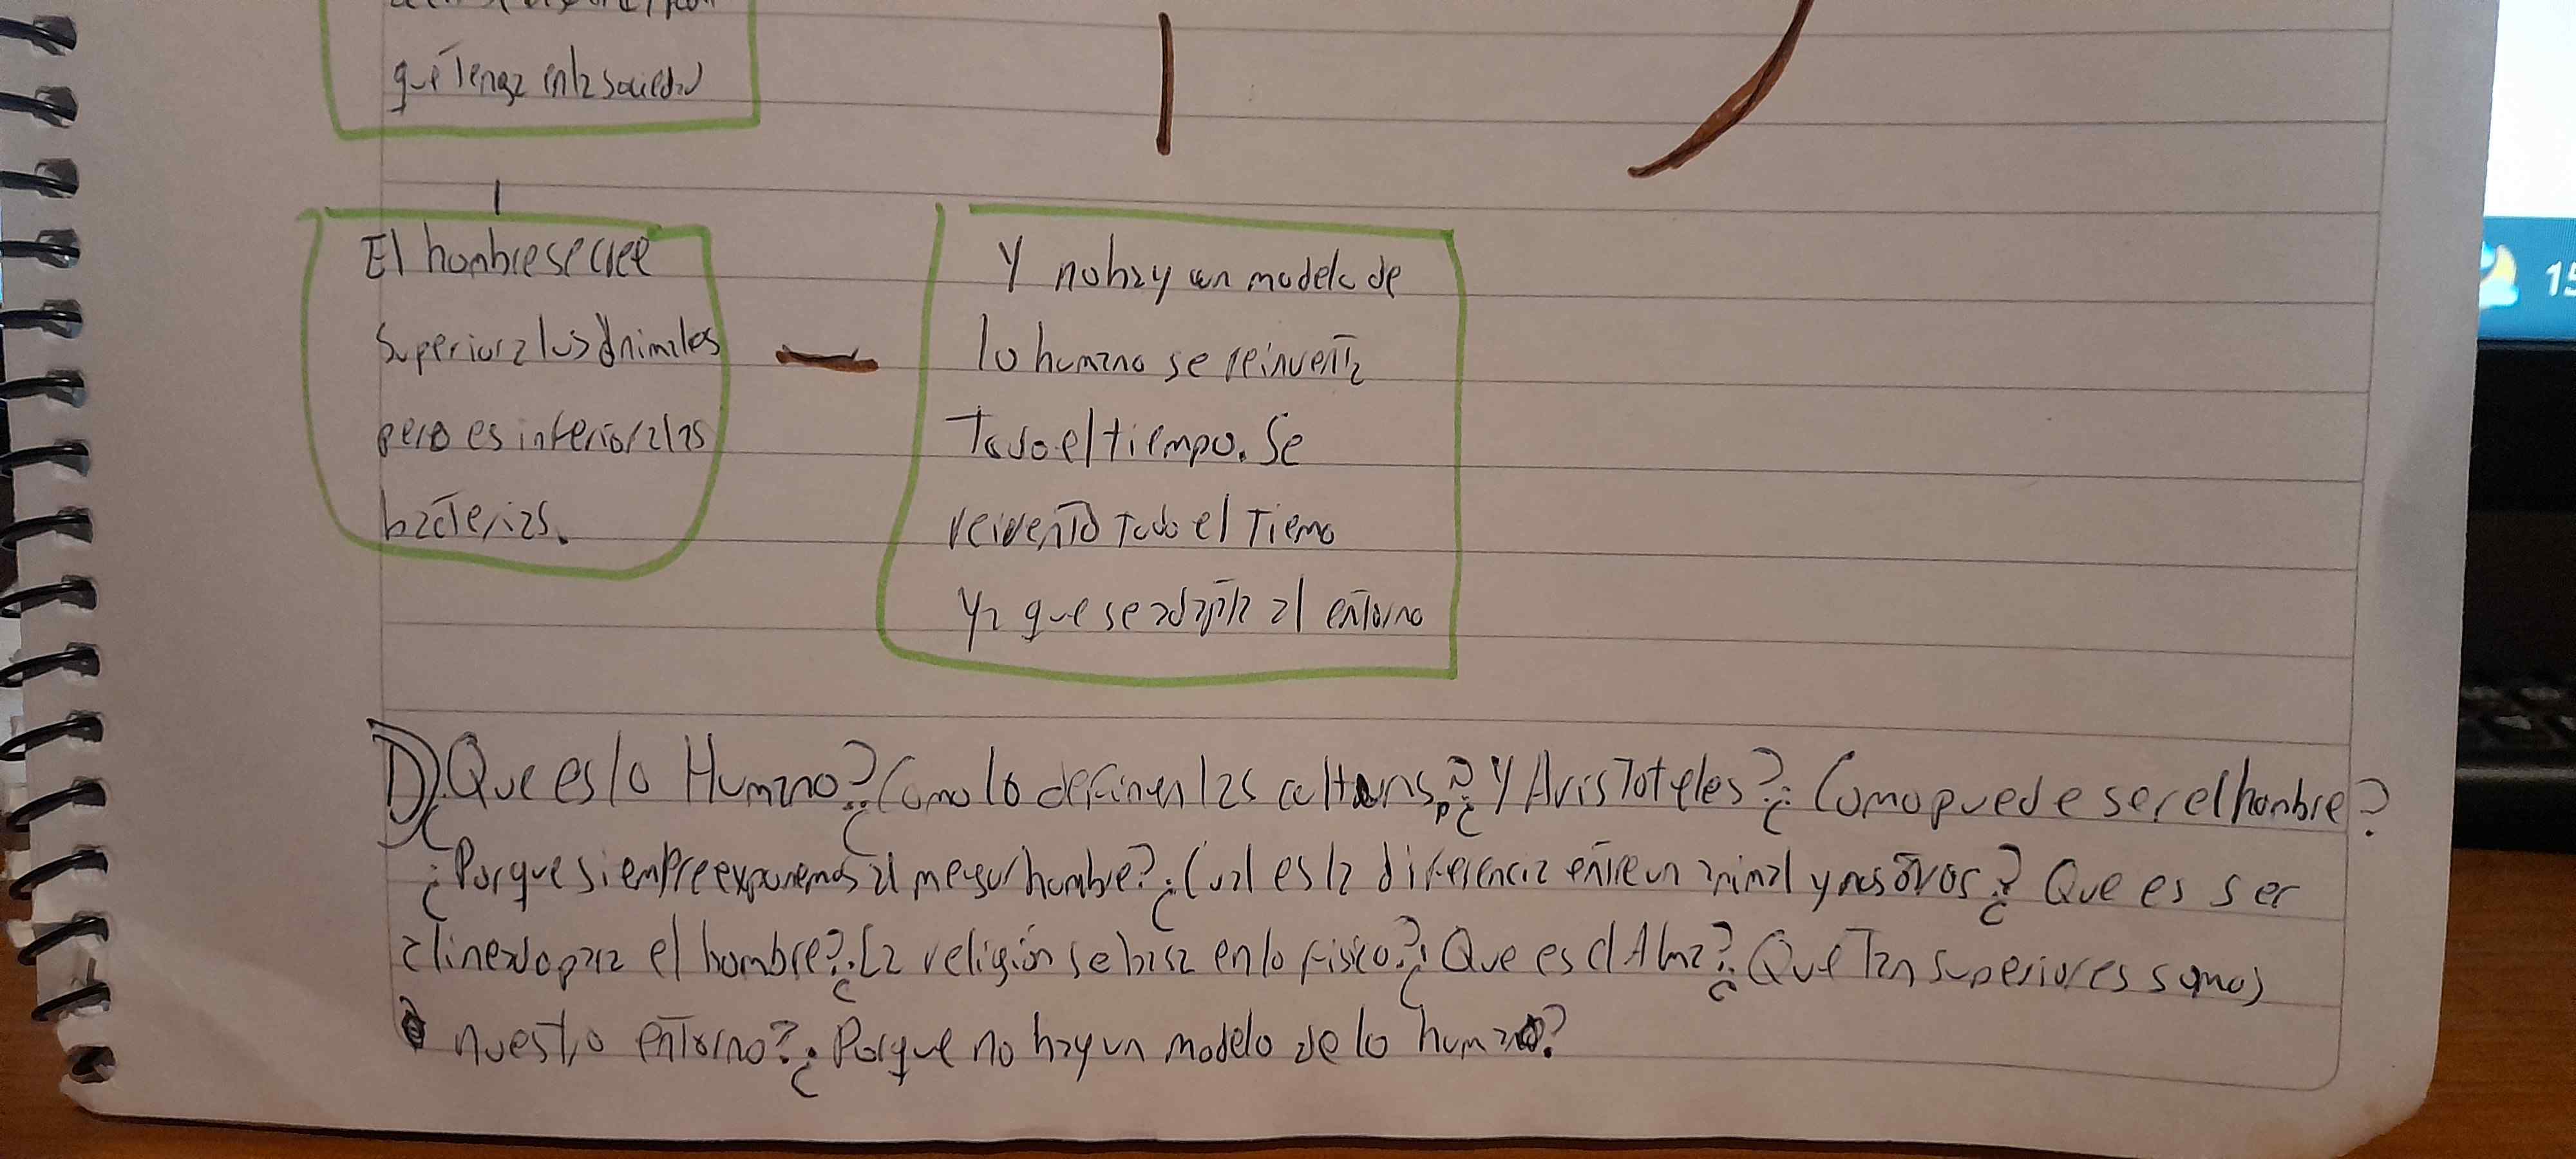 que Tenga en la sociedad
El hombre se cree
Superior a los Animales
pero es inferior a las
bacterias.
Y no hay un modelo de
lo humano se reinventa
Todo el tiempo. Se
reivento Todo el Tiemo
Ya que se adapta al entorno
D) ¿Que es lo Humano? ¿Como lo definen las culturas? ¿Y ArisToteles? ¿Como puede ser el hombre?
¿Porque siempre exponemos al mejor hombre? ¿Cual es la diferencia entre un animal y nosotros? ¿Que es ser
alineado para el hombre? ¿La religión se basa en lo fisico? ¿Que es el Alma? ¿Que Tan superiores somos
a nuestro entorno? ¿Porque no hay un modelo de lo humano?
15